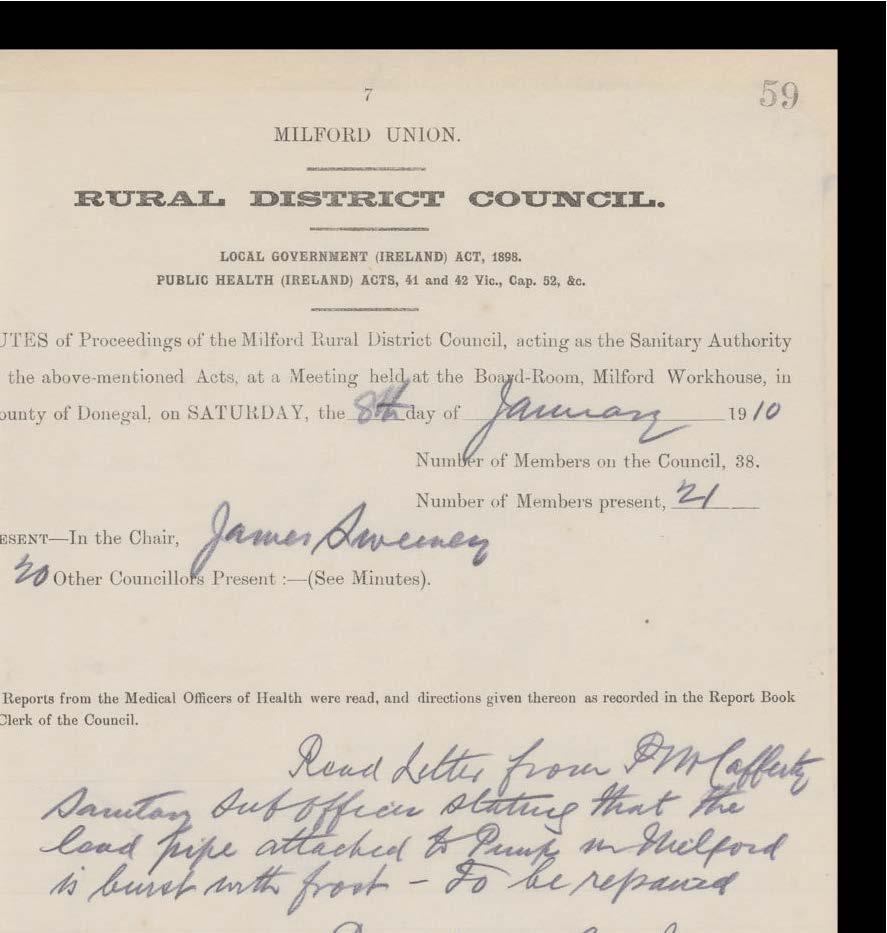 7
59
MILFORD UNION.
RURAL DISTRICT COUNCIL.
LOCAL GOVERNMENT (IRELAND) ACT, 1898.
PUBLIC HEALTH (IRELAND) ACTS, 41 and 42 Vic., Cap. 52, &c.
UTES of Proceedings of the Milford Rural District Council, acting as the Sanitary Authority
the above-mentioned Acts, at a Meeting held at the Board-Room, Milford Workhouse, in
ounty of Donegal, on SATURDAY, the 8th day of January 1910
Number of Members on the Council, 38.
Number of Members present, 21
ESENT—In the Chair, James Sweeney
20 Other Councillors Present :—(See Minutes).
Reports from the Medical Officers of Health were read, and directions given thereon as recorded in the Report Book
Clerk of the Council.
Read Letter from P McCafferty
Sanitary Sub Officer stating that the
lead pipe attached to Pump in Milford
is burst with frost – To be repaired